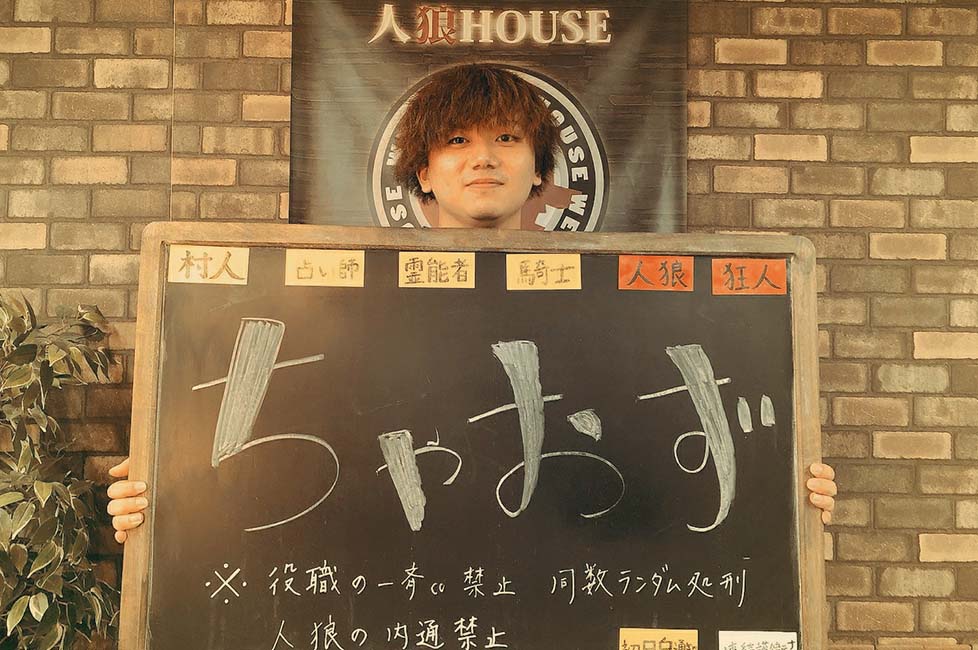 人狼HOUSE
HOUSE WE
村人 占い師 霊能者 騎士 人狼 狂人
ちゃおず
※ 役職の一斉co禁止 同数ランダム処刑
人狼の内通禁止